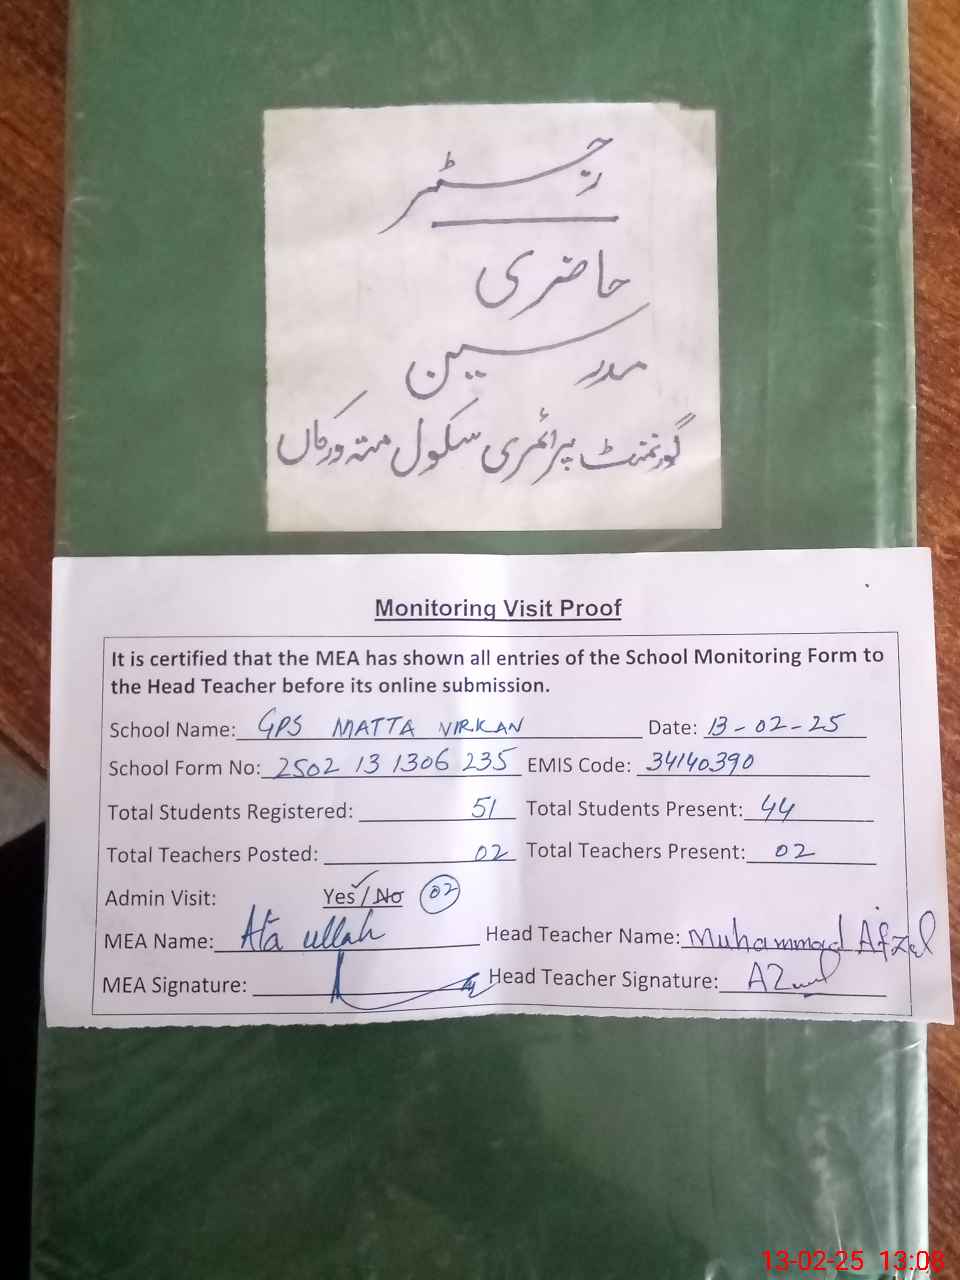 رجسٹر
حاضری
مدرسین
گورنمنٹ پرائمری سکول متہ ورکاں
Monitoring Visit Proof
It is certified that the MEA has shown all entries of the School Monitoring Form to
the Head Teacher before its online submission.
School Name: GPS MATTA VIRKAN Date: 13-02-25
School Form No: 2502 13 1306 235 EMIS Code: 34140390
Total Students Registered: 51 Total Students Present: 44
Total Teachers Posted: 02 Total Teachers Present: 02
Admin Visit: Yes / No 02
MEA Name: Ata ullah Head Teacher Name: Muhammad Afzal
MEA Signature: Head Teacher Signature:
13-02-25 13:08